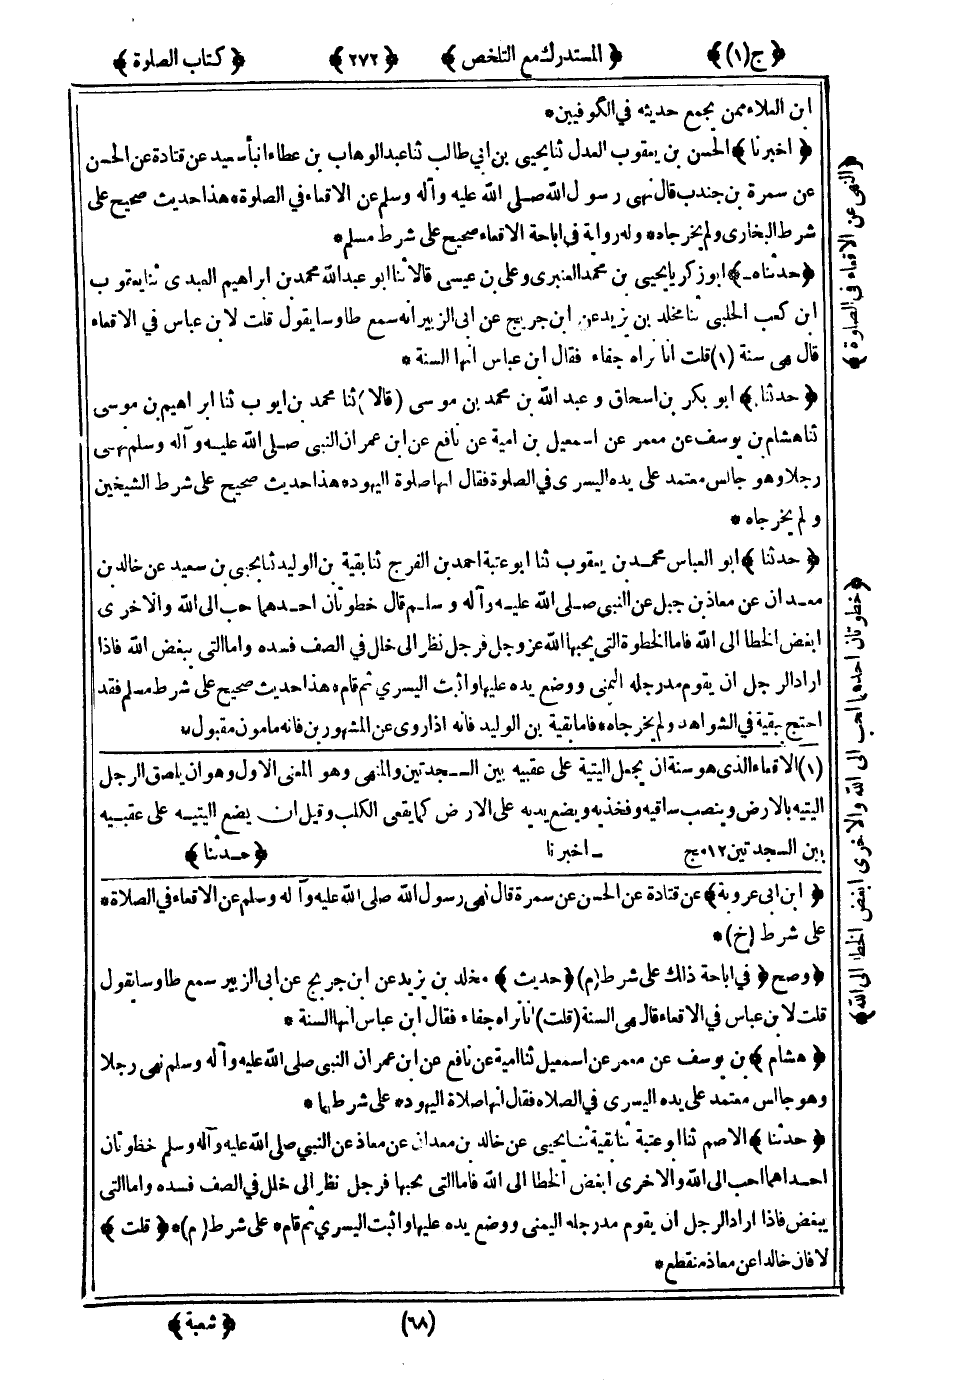 ﴿ ج (١) ﴾ ﴿ المستدرك مع التلخص ﴾ ﴿ ٢٧٢ ﴾ ﴿ كتاب الصلوة ﴾
ابن العلاء ممن يجمع حديثه في الكوفيين*
﴿ اخبرنا ﴾ الحسن بن يعقوب العدل ثنا يحيى بن ابي طالب ثنا عبد الوهاب بن عطاء انبأ سعيد عن قتادة عن الحسن
عن سمرة بن جندب قال نهى رسول الله صلى الله عليه وآله وسلم عن الاقعاء في الصلوة* هذا حديث صحيح على
شرط البخارى ولم يخرجاه* وله رواية في اباحة الاقعاء صحيح على شرط مسلم*
﴿ حدثناه ﴾ ابو زكريا يحيى بن محمد العنبرى وعلى بن عيسى قالا ثنا ابو عبد الله محمد بن ابراهيم العبدى ثنا يعقوب
ابن كعب الحلبى ثنا مخلد بن يزيد عن ابن جريج عن ابى الزبير انه سمع طاوسا يقول قلت لابن عباس في الاقعاء
قال هى سنة (١) قلت انا نراه جفاء فقال ابن عباس انها السنة *
﴿ حدثنا ﴾ ابو بكر بن اسحاق و عبد الله بن محمد بن موسى (قالا) ثنا محمد بن ايوب ثنا ابراهيم بن موسى
ثنا هشام بن يوسف عن معمر عن اسمعيل بن امية عن نافع عن ابن عمر ان النبى صلى الله عليه وآله وسلم نهى
رجلا وهو جالس معتمد على يده اليسرى في الصلوة فقال انها صلوة اليهود* هذا حديث صحيح على شرط الشيخين
ولم يخرجاه *
﴿ حدثنا ﴾ ابو العباس محمد بن يعقوب ثنا ابو عتبة احمد بن الفرج ثنا بقية بن الوليد ثنا يحيى بن سعيد عن خالد بن
معدان عن معاذ بن جبل عن النبى صلى الله عليه وآله وسلم قال خطوتان احدهما احب الى الله والاخرى
ابغض الخطا الى الله فاما الخطوة التى يحبها الله عز وجل فرجل نظر الى خلل في الصف فسده واما التى يبغض الله فاذا
اراد الرجل ان يقوم مد رجله اليمنى ووضع يده عليها واثبت اليسري ثم قام* هذا حديث صحيح على شرط مسلم فقد
احتج ببقية في الشواهد ولم يخرجاه* فاما بقية بن الوليد فانه اذا روى عن المشهورين فانه مامون مقبول*
(١) الاقعاء الذى هو سنة ان يجعل اليتية على عقبيه بين السجدتين والمنهى وهو المعنى الاول وهو ان يلصق الرجل
اليتيه بالارض وينصب ساقيه وفخذيه ويضع يديه على الارض كما يقعى الكلب وقيل ان يضع اليتيه على عقبيه
بين السجدتين ١٢ مج ـ اخبرنا ﴿ حدثنا ﴾
﴿ ابن ابى عروبة ﴾ عن قتادة عن الحسن عن سمرة قال نهى رسول الله صلى الله عليه وآله وسلم عن الاقعاء في الصلاة*
على شرط (خ)*
﴿ وصح ﴾ في اباحة ذلك على شرط (م) ﴿ حديث ﴾ مخلد بن يزيد عن ابن جريج عن ابى الزبير سمع طاوسا يقول
قلت لابن عباس في الاقعاء قال هى السنة (قلت) انا نراه جفاء فقال ابن عباس انها السنة *
﴿ هشام ﴾ بن يوسف عن معمر عن اسمعيل ثنا امية عن نافع عن ابن عمر ان النبى صلى الله عليه وآله وسلم نهى رجلا
وهو جالس معتمد على يده اليسرى في الصلاه فقال انها صلاة اليهود* على شرطهما *
﴿ حدثنا ﴾ الاصم ثنا ابو عتبة ثنا بقية ثنا يحيى عن خالد بن معدان عن معاذ عن النبي صلى الله عليه وآله وسلم خطوتان
احداهما احب الى الله والاخرى ابغض الخطا الى الله فاما التى يحبها فرجل نظر الى خلل في الصف فسده واما التى
يبغض فاذا اراد الرجل ان يقوم مد رجله اليمنى ووضع يده عليها واثبت اليسري ثم قام* على شرط (م)* ﴿ قلت ﴾
لا فان خالدا عن معاذ منقطع*
﴿ النهى عن الاقعاء في الصلوة ﴾
﴿ خطوتان احدهما احب الى الله والاخرى ابغض الخطا الى الله ﴾
(٦٨) ﴿ شعبة ﴾